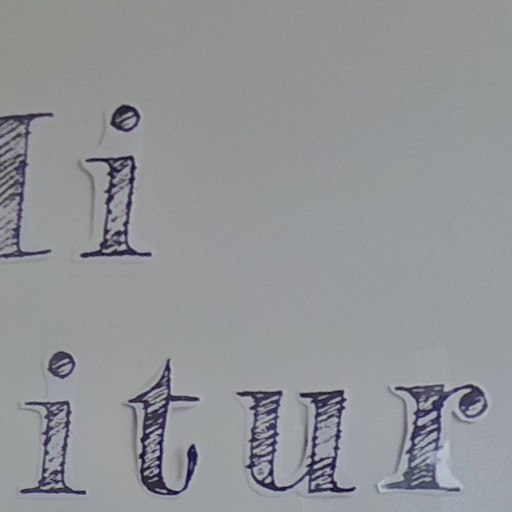 i
itur